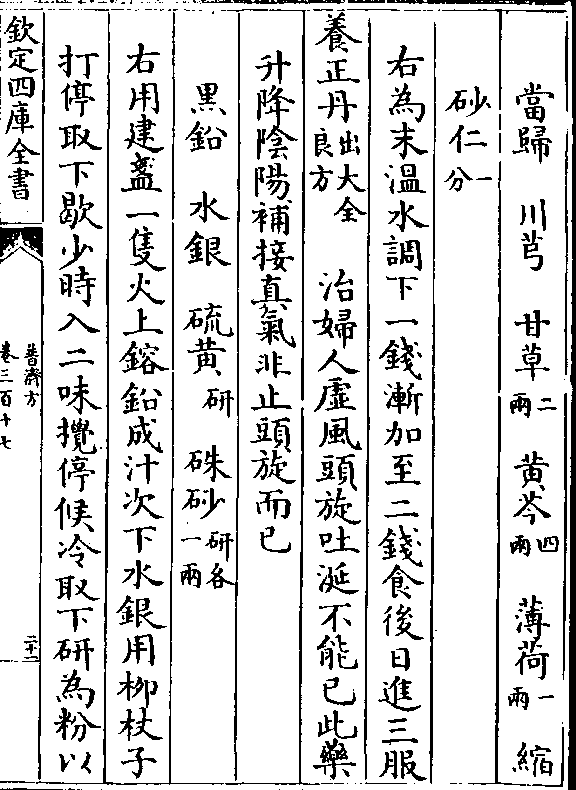 當歸　川芎　甘草二兩　黄芩四兩　薄荷一兩　縮
砂仁一分
右為末溫水調下一錢漸加至二錢食後日進三服
養正丹出大全良方　治婦人虛風頭旋吐涎不能已此藥
升降陰陽補接真氣非止頭旋而已
黑鉛　水銀　硫黄研　硃砂研各一兩
右用建盞一隻火上鎔鉛成汁次下水銀用柳杖子
打停取下歇少時入二味攪停候冷取下研為粉以
欽定四庫全書
普濟方
卷三百十七
二十二